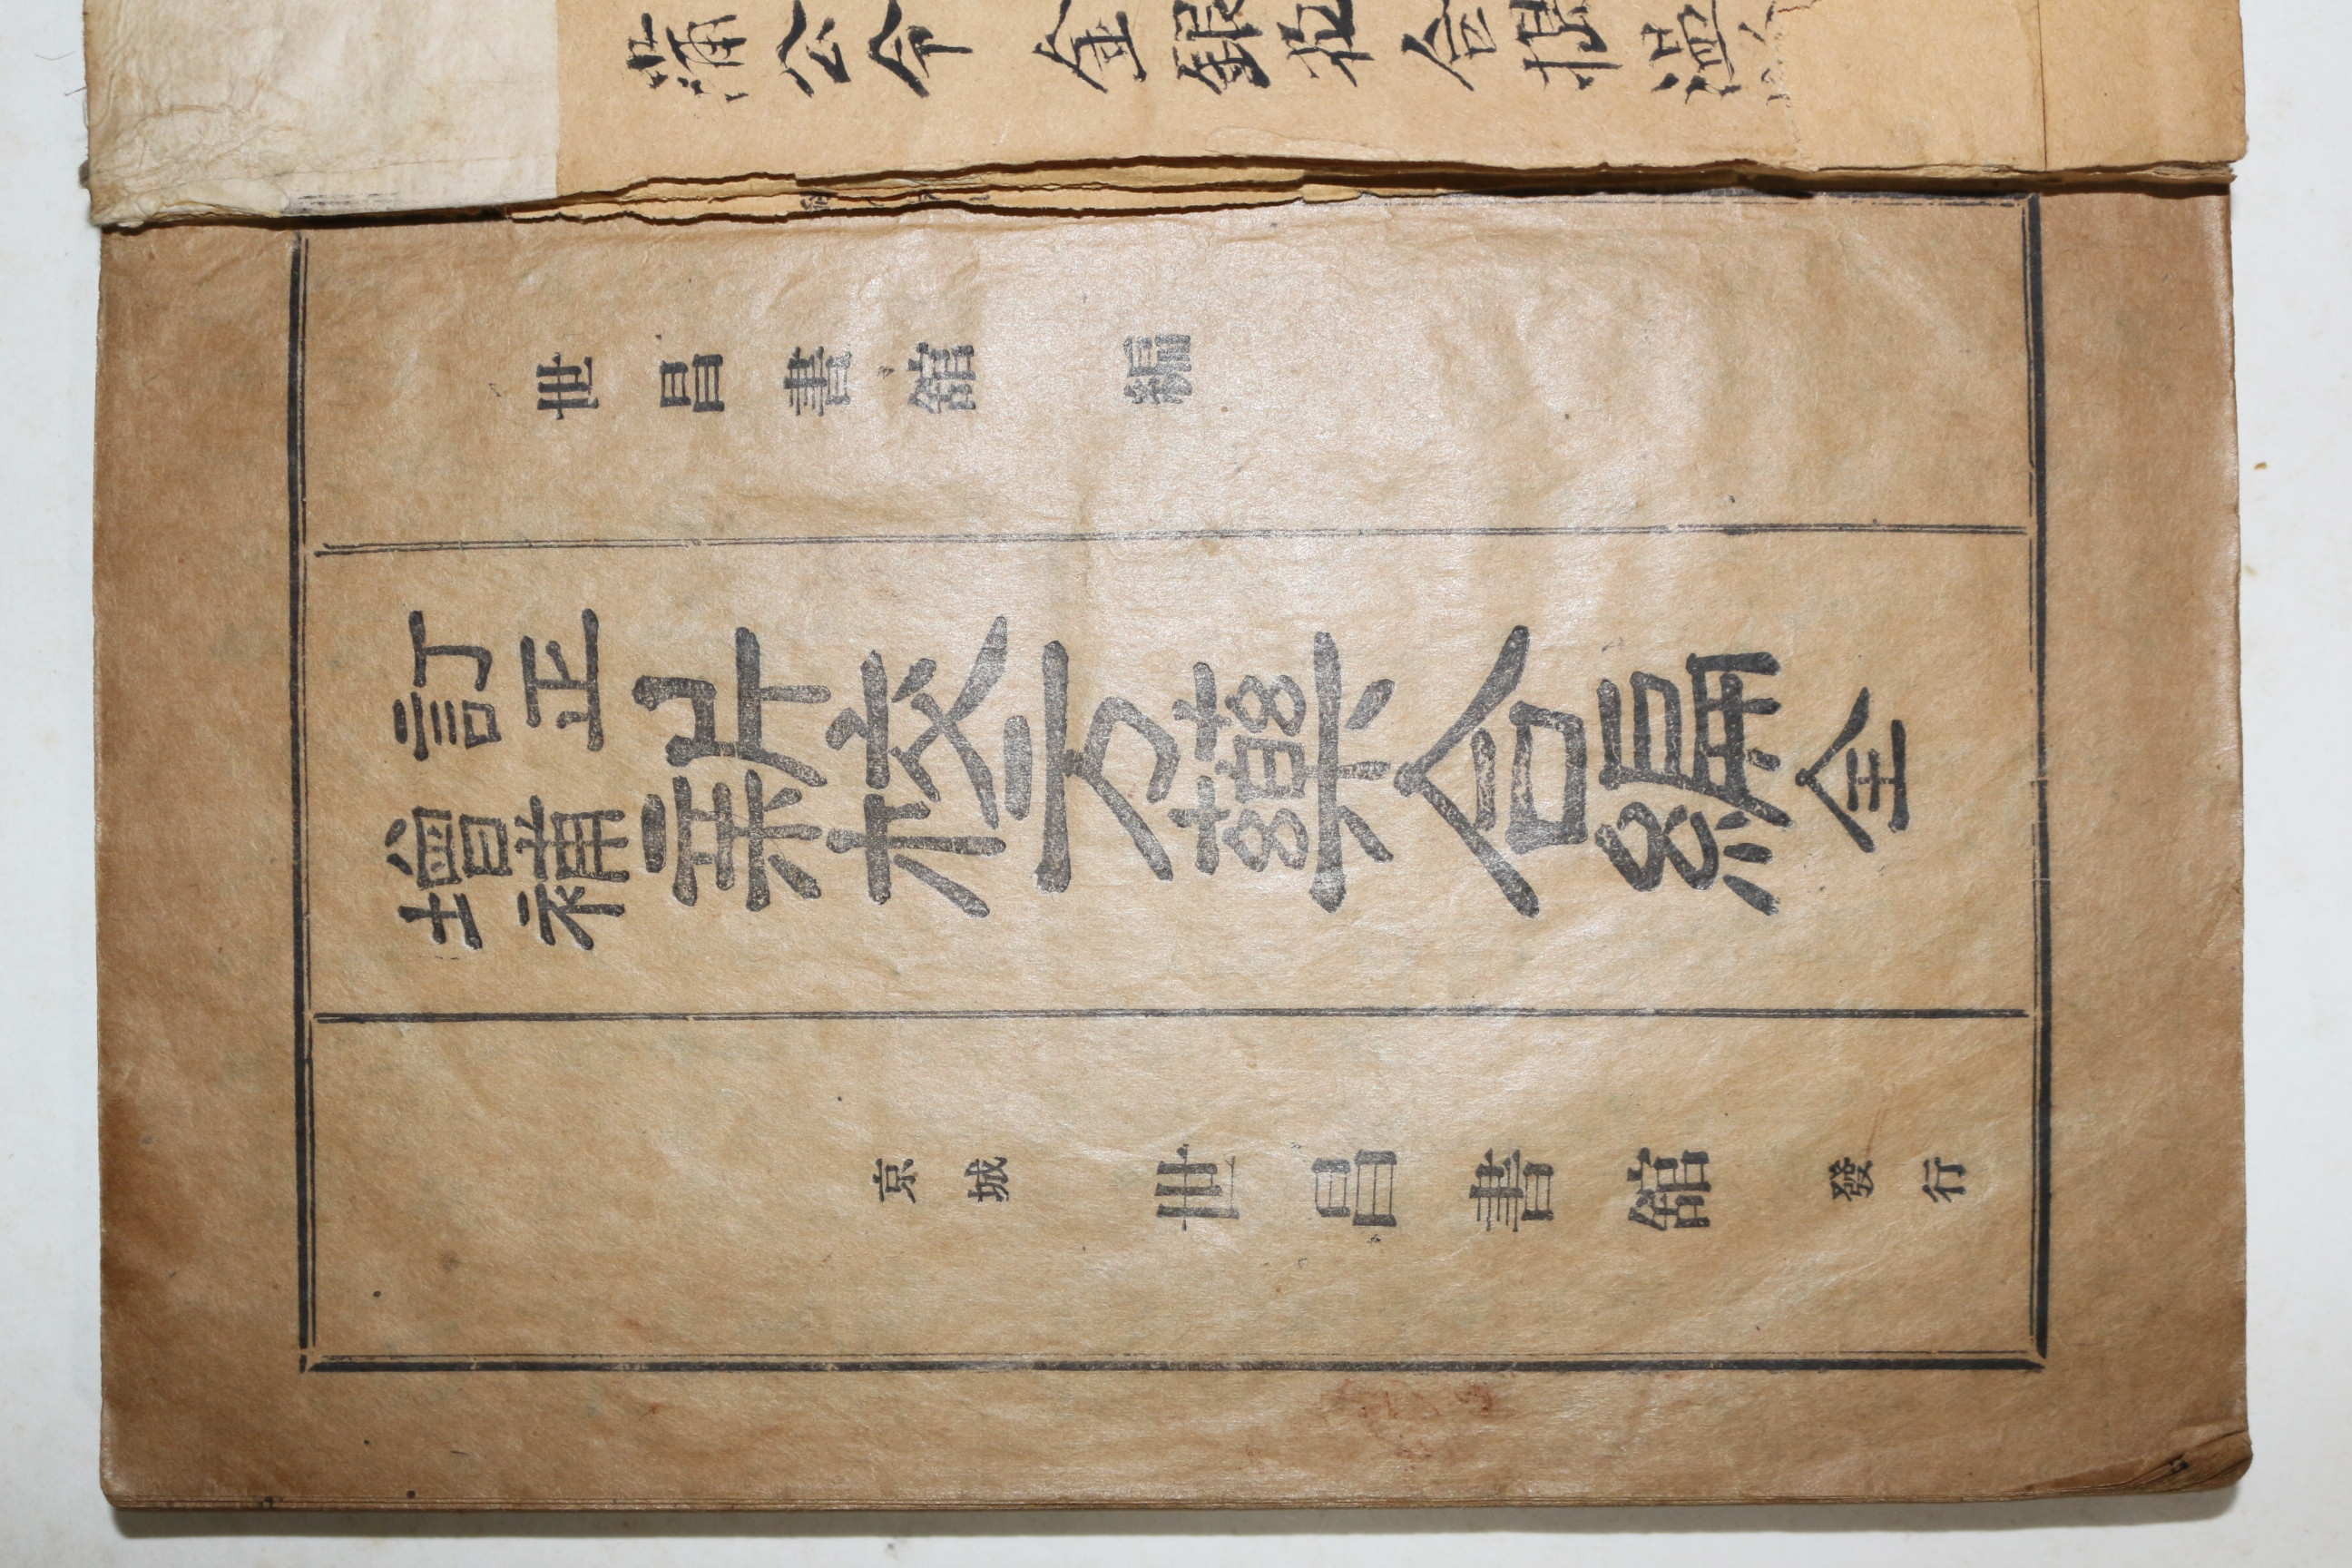 蒲公令 金銀花 合根 温
世昌書舘 編
訂正
增補
新校方藥合編 全
京城 世昌書舘 發行